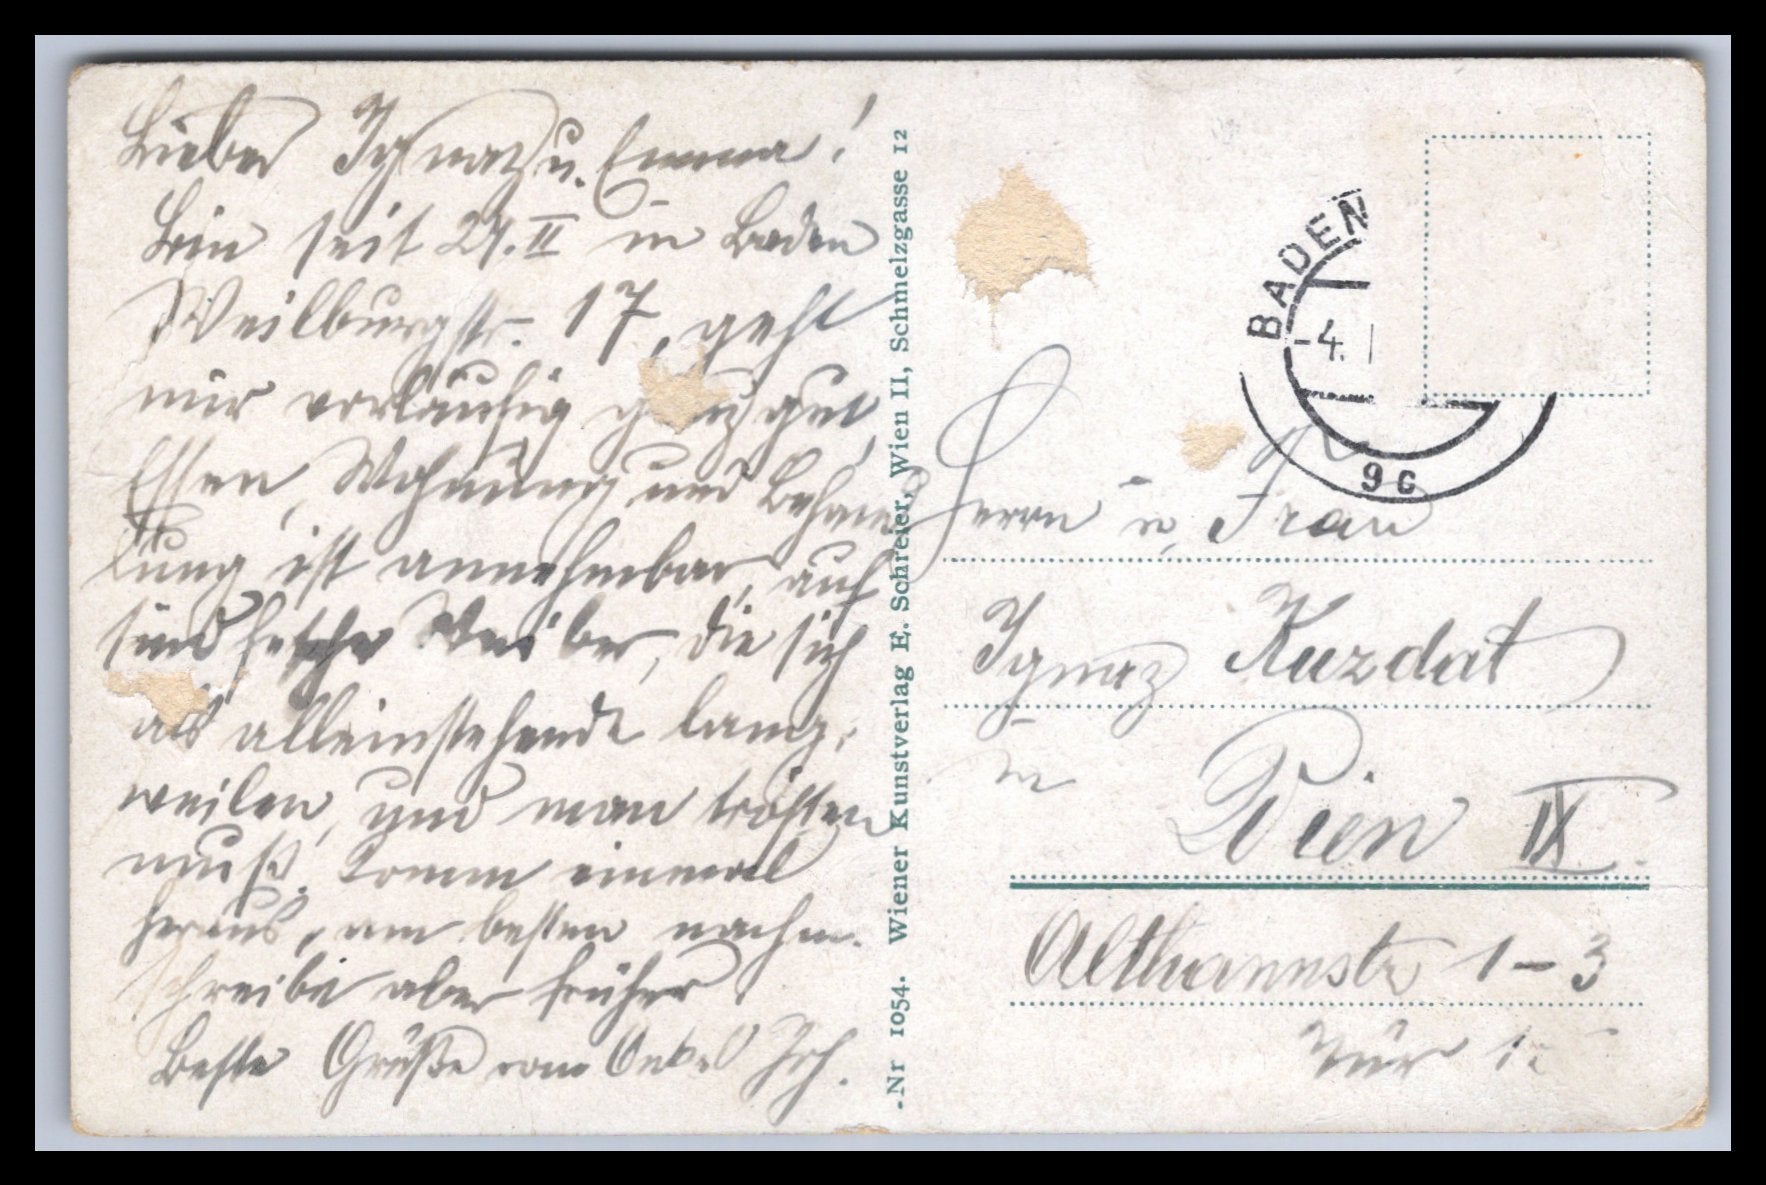 Lieber Ignaz u. Emma!
bin seit 27. II in Baden
Weilburgstr. 17, geht
mir vorläufig ganz gut,
Essen, Wohnung und Behand
lung ist annehmbar, auch
sind fesche Weiber, die sich
als alleinstehende lang-
weilen, und man trösten
muß. Komm einmal
heraus, am besten nachm.
schreibe aber früher
Beste Grüße vom Onkel Joh.
-Nr 1054. Wiener Kunstverlag E. Schreier, Wien II, Schmelzgasse 12
BADEN
-4.
9c
Herrn u. Frau
Ignaz Kuzdat
in
Wien IX.
Althannstr 1-3
Tür